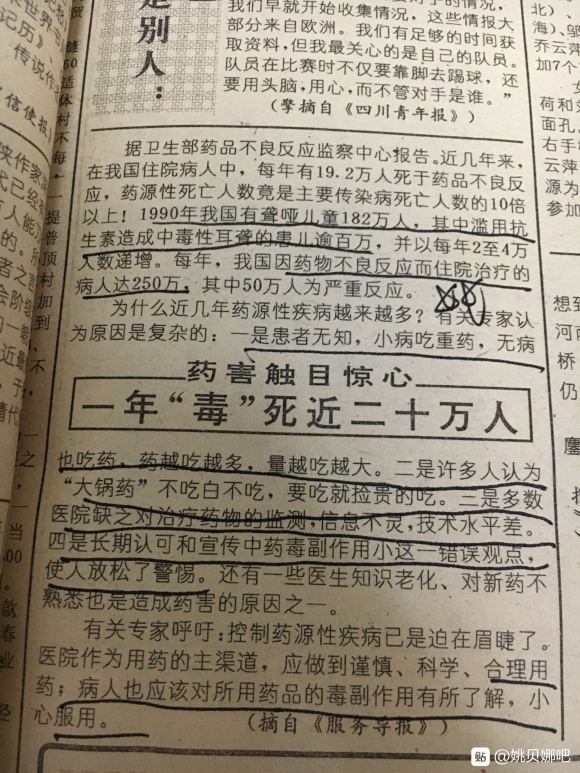 贸
记历》
传说作
(信使报)
侠作家
代已经
人能
的。所
者之言
会阶
一朝
近最
清代
缝
60
适体村不每，
一提普顶村加到
不，
当
400
款
春
业
经
是别人：
我们早就开始收集情况，这些情报大
部分来自欧洲。我们有足够的时间获
取资料，但我最关心的是自己的队员。
队员在比赛时不仅要靠脚去踢球，还
要用头脑，用心，而不管对手是谁。”
(擎摘自《四川青年报》)
据卫生部药品不良反应监察中心报告。近几年来，
在我国住院病人中，每年有19.2万人死于药品不良反
应，药源性死亡人数竟是主要传染病死亡人数的10倍
以上！1990年我国有聋哑儿童182万人，其中滥用抗
生素造成中毒性耳聋的患儿逾百万，并以每年2至4万
人数递增。每年，我国因药物不良反应而住院治疗的
病人达250万，其中50万人为严重反应。
为什么近几年药源性疾病越来越多？有关专家认
为原因是复杂的：一是患者无知，小病吃重药，无病
药害触目惊心
一年“毒”死近二十万人
也吃药，药越吃越多，量越吃越大。二是许多人认为
“大锅药”不吃白不吃，要吃就捡贵的吃。三是多数
医院缺乏对治疗药物的监测，信息不灵，技术水平差。
四是长期认可和宣传中药毒副作用小这一错误观点，
使人放松了警惕。还有一些医生知识老化、对新药不
熟悉也是造成药害的原因之一。
有关专家呼吁：控制药源性疾病已是迫在眉睫了。
医院作为用药的主渠道，应做到谨慎、科学、合理用
药；病人也应该对所用药品的毒副作用有所了解，小
心服用。
(摘自《服务导报》)
北)、
海)、邬
乔云萍
加7个
女
荷和
面孔，
右手
云萍
参加
想到
河南
桥
仍
鏖
贴 @姚贝娜吧